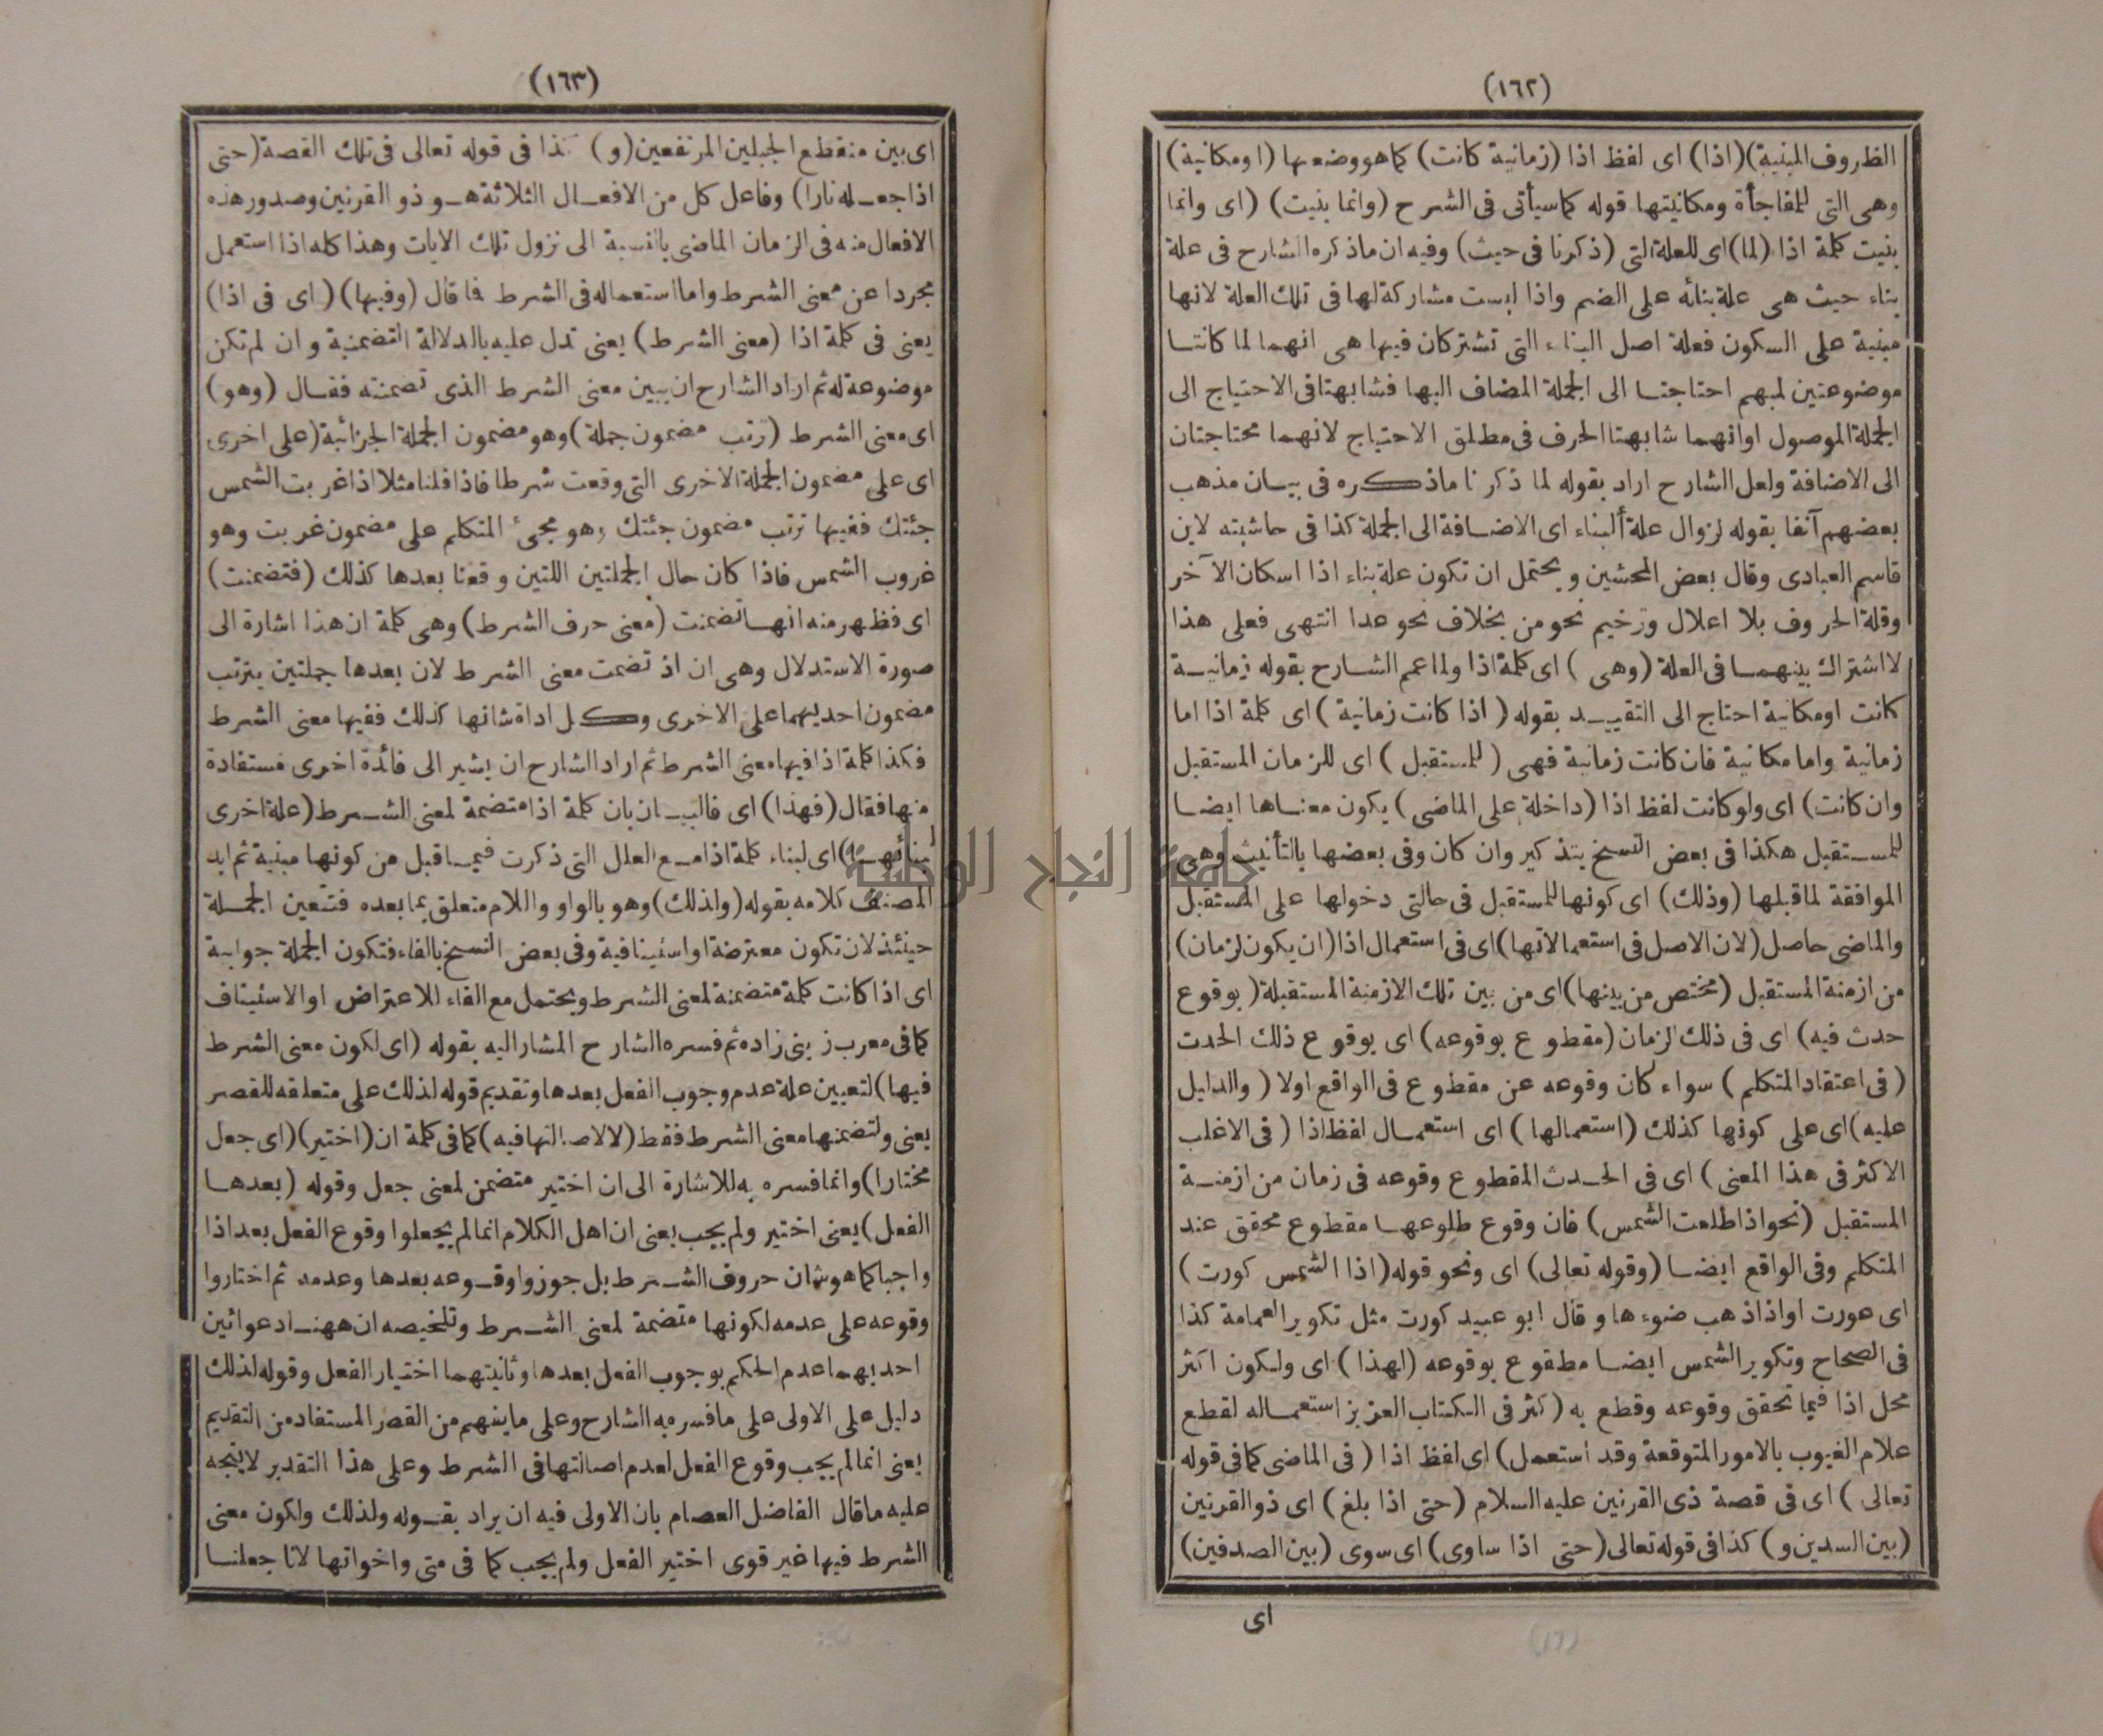 (١٦٢)
الظروف المبنية)(اذا) اى لفظ اذا (زمانية كانت) كما هو وضعها (او مكانية)
وهى التى للمفاجأة ومكانيتها قوله كما سيأتى فى الشرح (وانما بنيت) (اى وانما
بنيت كلمة اذا (لما) اى للعلة التى (ذكرنا فى حيث) وفيه ان ما ذكره الشارح فى علة
بناء حيث هى علة بنائه على الضم واذا ليست مشاركة لها فى تلك العلة لانها
مبنية على السكون فعلة اصل البناء التى تشتركان فيها هى انهما لما كانتا
موضوعتين لمبهم احتاجتا الى الجملة المضاف اليها فشابهتا فى الاحتياج الى
الجملة الموصول او انهما شابهتا الحرف فى مطلق الاحتياج لانهما محتاجتان
الى الاضافة ولعل الشارح اراد بقوله لما ذكرنا ما ذكره فى بيان مذهب
بعضهم آنفا بقوله لزوال علة البناء اى الاضافة الى الجملة كذا فى حاشيته لابن
قاسم العبادى وقال بعض المحشين ويحتمل ان تكون علة بناء اذا اسكان الآخر
وقلة الحروف بلا اعلال وترخيم نحو من بخلاف نحو عدا انتهى فعلى هذا
لا اشتراك بينهما فى العلة (وهى) اى كلمة اذا ولما عمم الشارح بقوله زمانية
كانت او مكانية احتاج الى التقييد بقوله (اذا كانت زمانية) اى كلمة اذا اما
زمانية واما مكانية فان كانت زمانية فهى (للمستقبل) اى للزمان المستقبل
وان كانت) اى ولو كانت لفظ اذا (داخلة على الماضى) يكون معناها ايضا
للمستقبل هكذا فى بعض النسخ بتذكير وان كان وفى بعضها بالتأنيث وهى
الموافقة لما قبلها (وذلك) اى كونها للمستقبل فى حالتى دخولها على المستقبل
والماضى حاصل (لان الاصل فى استعمالاتها) اى فى استعمال اذا (ان يكون لزمان)
من ازمنة المستقبل (مختص من بينها) اى من بين تلك الازمنة المستقبلة (بوقوع
حدث فيه) اى فى ذلك الزمان (مقطوع بوقوعه) اى بوقوع ذلك الحدث
(فى اعتقاد المتكلم) سواء كان وقوعه عن مقطوع فى الواقع اولا (والدليل
عليه) اى على كونها كذلك (استعمالها) اى استعمال لفظ اذا (فى الاغلب
الاكثر فى هذا المعنى) اى فى الحدث المقطوع وقوعه فى زمان من ازمنة
المستقبل (نحو اذا طلعت الشمس) فان وقوع طلوعها مقطوع محقق عند
المتكلم وفى الواقع ايضا (وقوله تعالى) اى ونحو قوله (اذا الشمس كورت)
اى عورت او اذا ذهب ضوءها وقال ابو عبيد كورت مثل تكوير العمامة كذا
فى الصحاح وتكوير الشمس ايضا مطقوع بوقوعه (لهذا) اى ولكون اكثر
محل اذا فيما تحقق وقوعه وقطع به (كثر فى الكتاب العزيز استعماله لقطع
علام الغيوب بالامور المتوقعة وقد استعمل) اى لفظ اذا (فى الماضى كما فى قوله
تعالى) اى فى قصة ذى القرنين عليه السلام (حتى اذا بلغ) اى ذو القرنين
(بين السدين و) كذا فى قوله تعالى (حتى اذا ساوى) اى سوى (بين الصدفين)
اى
(١٦٣)
اى بين منقطع الجبلين المرتفعين (و) كذا فى قوله تعالى فى تلك القصة (حتى
اذا جعله نارا) وفاعل كل من الافعال الثلاثة هو ذو القرنين وصدور هذه
الافعال منه فى الزمان الماضى بالنسبة الى نزول تلك الايات وهذا كله اذا استعمل
مجردا عن معنى الشرط واما استعماله فى الشرط فا قال (وفيها) (اى فى اذا)
يعنى فى كلمة اذا (معنى الشرط) يعنى تدل عليه بالدلالة التضمنية وان لم تكن
موضوعة له ثم اراد الشارح ان يبين معنى الشرط الذى تضمنته فقال (وهو)
اى معنى الشرط (ترتب مضمون جملة) وهو مضمون الجملة الجزائية (على اخرى
اى على مضمون الجملة الاخرى التى وقعت شرطا فاذا قلنا مثلا اذا غربت الشمس
جئتك ففيها ترتب مضمون جئتك وهو مجئ المتكلم على مضمون غربت وهو
غروب الشمس فاذا كان حال الجملتين اللتين وقعتا بعدها كذلك (فتضمنت)
اى فظهر منه انها تضمنت (معنى حرف الشرط) وهى كلمة ان هذا اشارة الى
صورة الاستدلال وهى ان اذ تضمنت معنى الشرط لان بعدها جملتين يترتب
مضمون احديهما على الاخرى وكل اداة شانها كذلك ففيها معنى الشرط
فكذا كلمة اذا فيها معنى الشرط ثم اراد الشارح ان يشير الى فائدة اخرى مستفادة
منها فقال (فهذا) اى فالبيان بان كلمة اذا متضمنة لمعنى الشرط (علة اخرى
لبنائها) اى لبناء كلمة اذا مع العلل التى ذكرت فيما قبل من كونها مبنية ثم ايد
المصنف كلامه بقوله (ولذلك) وهو بالواو واللام متعلق بما بعده فتتعين الجملة
حينئذ لان تكون معترضة او استينافية وفى بعض النسخ بالفاء فتكون الجملة جوابية
اى اذا كانت كلمة متضمنة لمعنى الشرط ويحتمل مع الفاء للاعتراض او الاستيناف
كما فى معرب زينى زاده ثم فسره الشارح المشار اليه بقوله (اى لكون معنى الشرط
فيها) لتعيين علة عدم وجوب الفعل بعدها وتقديم قوله لذلك على متعلقه للقصر
يعنى ولتضمنها معنى الشرط فقط (لا لاصالتها فيه) كما فى كلمة ان (اختير) (اى جعل
مختارا) وانما فسره به للاشارة الى ان اختير متضمن لمعنى جعل وقوله (بعدها
الفعل) يعنى اختير ولم يجب يعنى ان اهل الكلام انما لم يجعلوا وقوع الفعل بعد اذا
واجبا كما هو شان حروف الشرط بل جوزوا وقوعه بعدها وعدمه ثم اختاروا
وقوعه على عدمه لكونها متضمنة لمعنى الشرط وتلخيصه ان ههنا دعوائين
احديهما عدم الحكم بوجوب الفعل بعدها وثانيتهما اختيار الفعل وقوله لذلك
دليل على الاولى على ما فسر به الشارح وعلى ما يفهم من القصر المستفاد من التقديم
يعنى انما لم يجب وقوع الفعل لعدم اصالتها فى الشرط وعلى هذا التقدير لا يتجه
عليه ما قال الفاضل العصام بان الاولى فيه ان يراد بقوله ولذلك ولكون معنى
الشرط فيها غير قوى اختير الفعل ولم يجب كما فى متى واخواتها لانا جعلنا
جامعة النجاح الوطنية